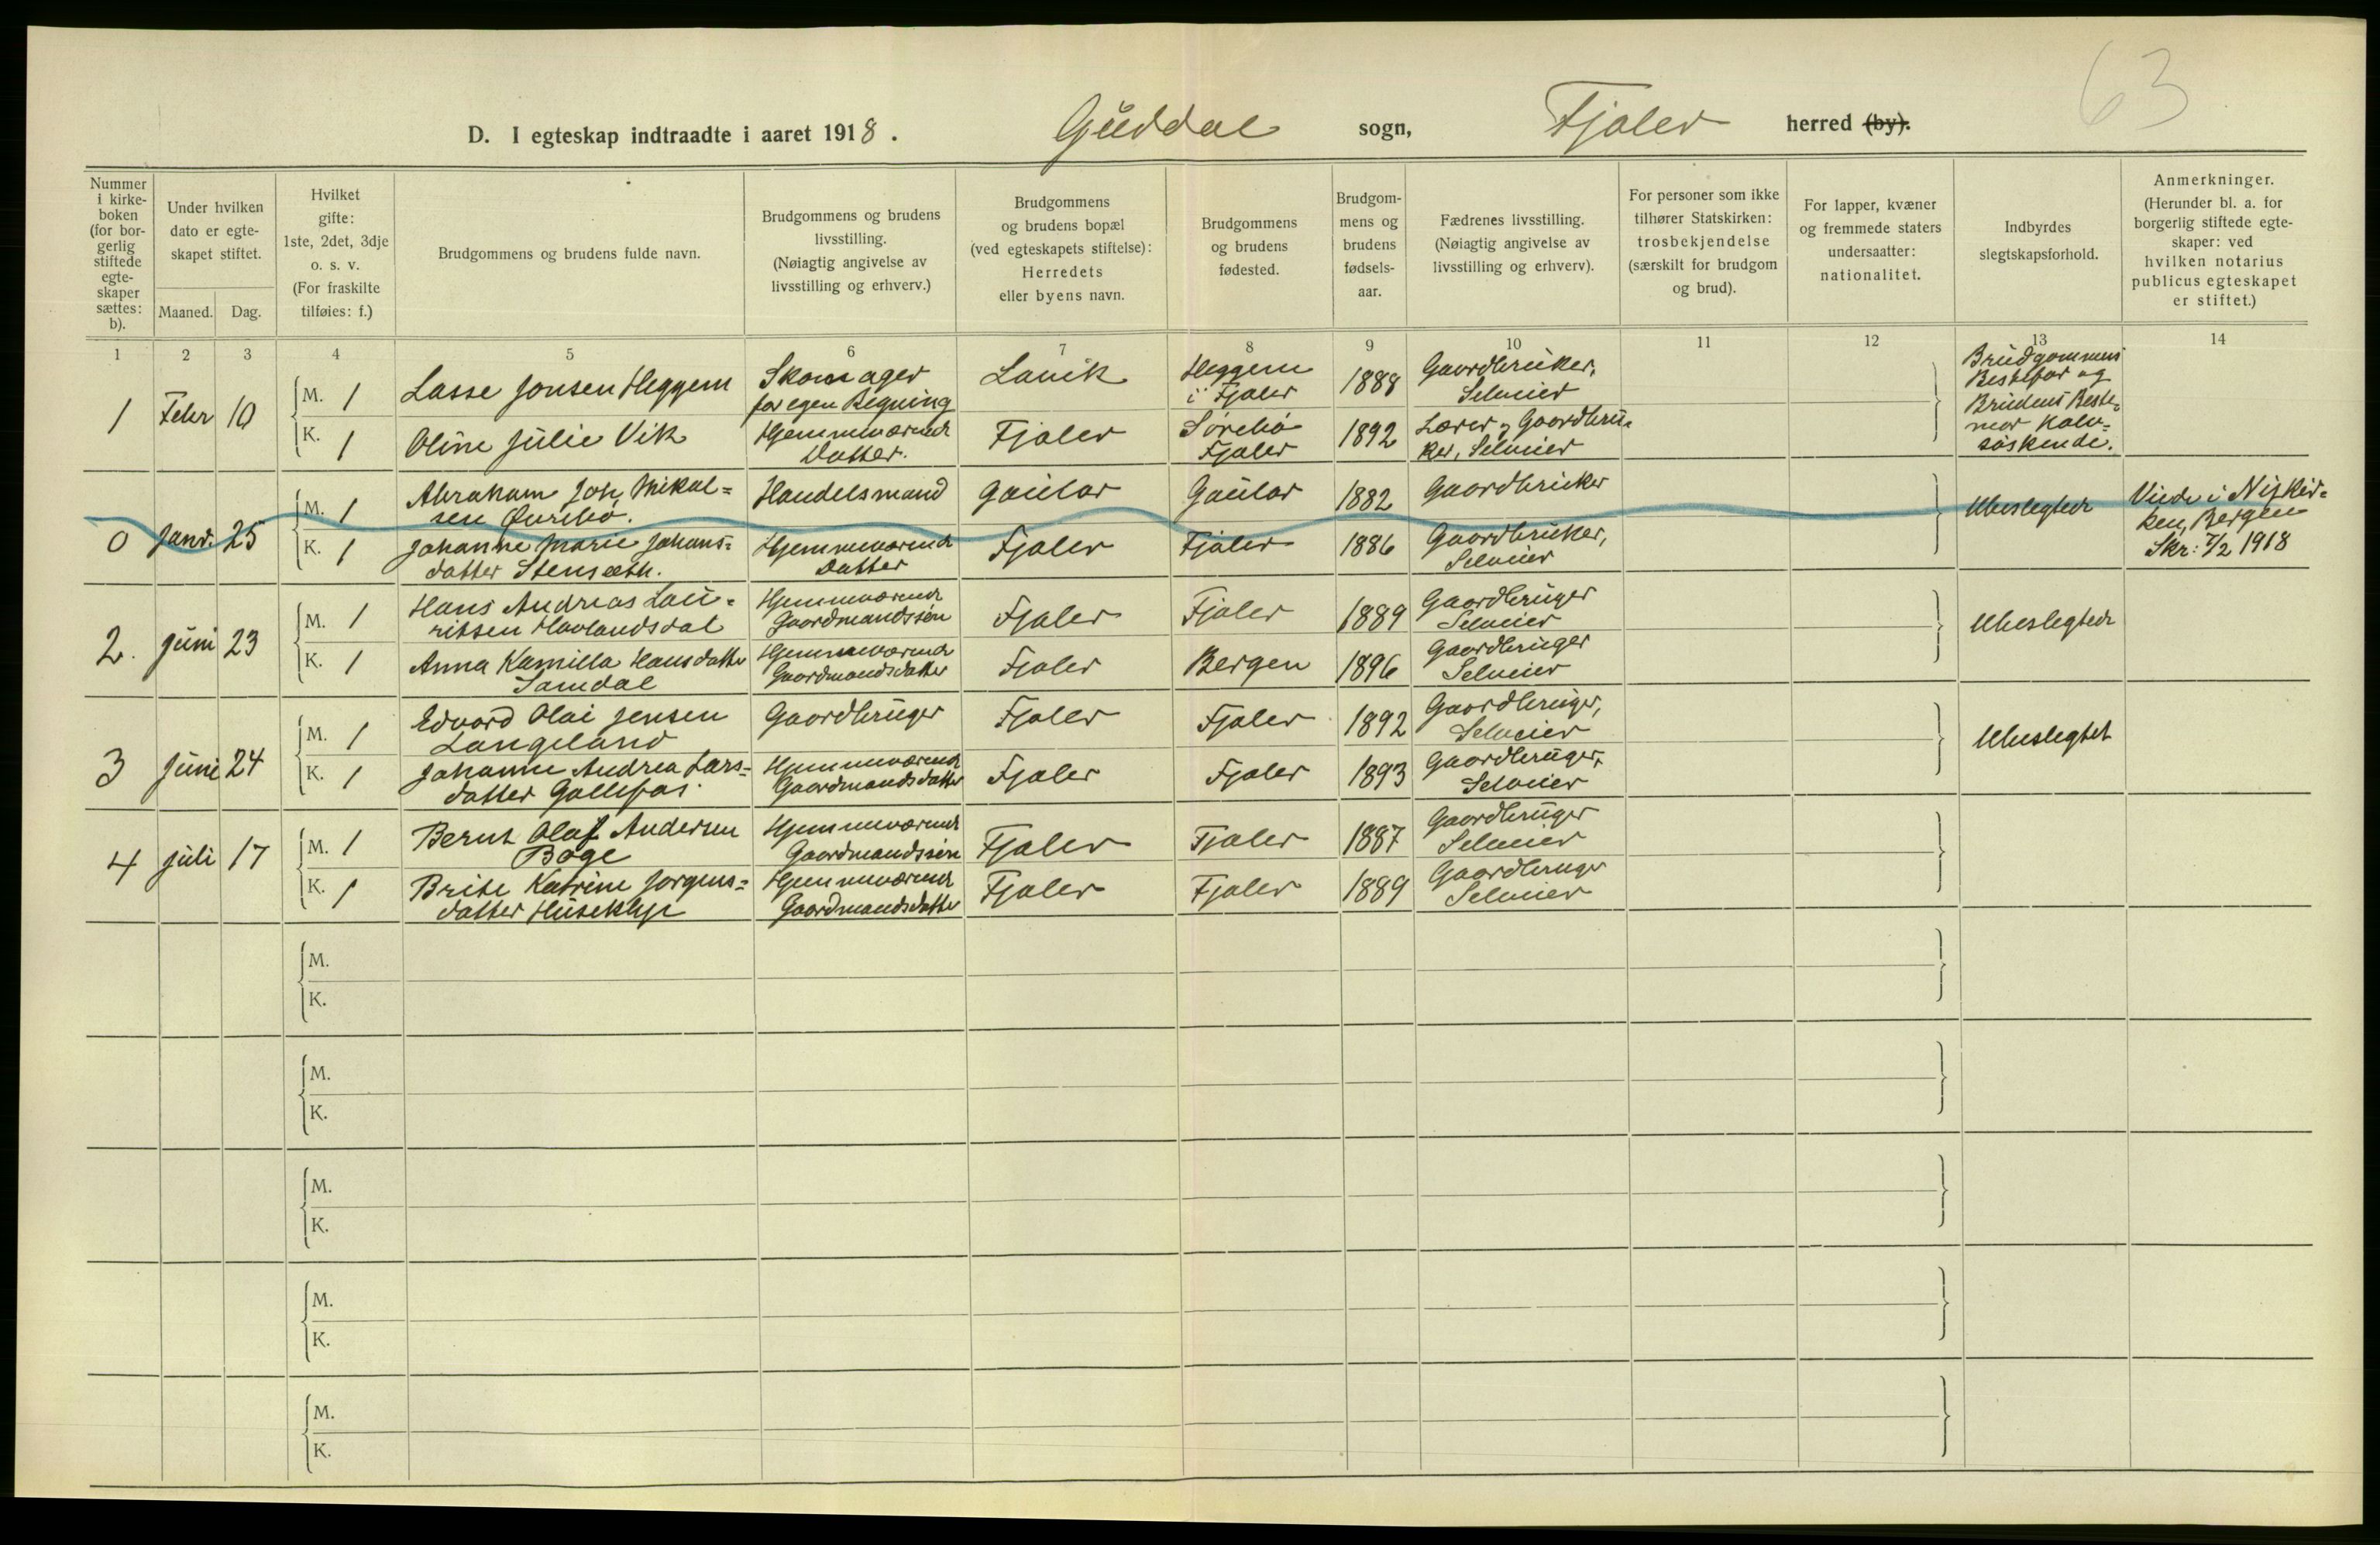 63
D. I egteskap indtraadte i aaret 1918. Guddal sogn, Fjaler herred (by).
Nummer i kirke-boken (for bor-gerlig stiftede egte-skaper sættes: b).
Under hvilken dato er egte-skapet stiftet.
Maaned. Dag.
Hvilket gifte: 1ste, 2det, 3dje o. s. v. (For fraskilte tilføies: f.)
Brudgommens og brudens fulde navn.
Brudgommens og brudens livsstilling. (Nøiagtig angivelse av livsstilling og erhverv.)
Brudgommens og brudens bopæl (ved egteskapets stiftelse): Herredets eller byens navn.
Brudgommens og brudens fødested.
Brudgom-mens og brudens fødsels-aar.
Fædrenes livsstilling. (Nøiagtig angivelse av livsstilling og erhverv).
For personer som ikke tilhører Statskirken: trosbekjendelse (særskilt for brudgom og brud).
For lapper, kvæner og fremmede staters undersaatter: nationalitet.
Indbyrdes slegtskapsforhold.
Anmerkninger. (Herunder bl. a. for borgerlig stiftede egte-skaper: ved hvilken notarius publicus egteskapet er stiftet.)
1 2 3 4 5 6 7 8 9 10 11 12 13 14
1 Febr 10
M. 1 Lasse Jonsen Heggem Skomager for egen Regning Lavik Heggem i Fjaler 1888 Gaardbruker, Selveier
K. 1 Oline Julie Vik Hjemmeværende Datter. Fjaler Sørebø Fjaler 1892 Lærer og Gaardbru-ker, Selveier
Brudgommens Bestefar og Brudens Beste-mor Halv-søskende.
0 Janr. 25
M. 1 Abraham Joh. Mikal=sen Øvrebø. Handelsmand Gaular Gaular 1882 Gaardbruker
K. 1 Johanne Marie Johans=datter Stensæth. Hjemmeværende Datter Fjaler Fjaler 1886 Gaardbruker, Selveier
Ubeslegtede
Viede i Nykir=ken, Bergen Skr: 7/2 1918
2. Juni 23
M. 1 Hans Andreas Lau=ritsen Hovlandsdal Hjemmeværende Gaardmandssøn Fjaler Fjaler 1889 Gaardbruger Selveier
K. 1 Anna Kamilla Hansdatter Samdal Hjemmeværende Gaardmandsdatter Fjaler Bergen 1896 Gaardbruger Selveier
Ubeslegtede
3 Juni 24
M. 1 Edvard Olai Jensen Langeland Gaardbruger Fjaler Fjaler 1892 Gaardbruger, Selveier
K. 1 Johanne Andrea Lars=datter Gallefos. Hjemmeværende Gaardmandsdatter Fjaler Fjaler 1893 Gaardbruger, Selveier
Ubeslegtet
4 Juli 17
M. 1 Bernt Olaf Andersen Bøge Hjemmeværende Gaardmandssøn Fjaler Fjaler 1887 Gaardbruger Selveier
K. 1 Brite Katrine Jørgens=datter Huseklep Hjemmeværende Gaardmandsdatter Fjaler Fjaler 1889 Gaardbruger Selveier
M.
K.
M.
K.
M.
K.
M.
K.
M.
K.